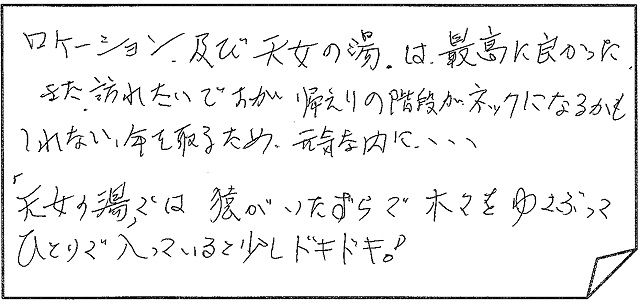 ロケーション.及び天女の湯.は.最高に良かった.
また.訪れたいですが帰えりの階段がネックになるかも
しれない、年を取るため、元気な内に、、、、
「天女の湯」では猿がいたずらで木々をゆさぶって
ひとりで入っていると少しドキドキ。!